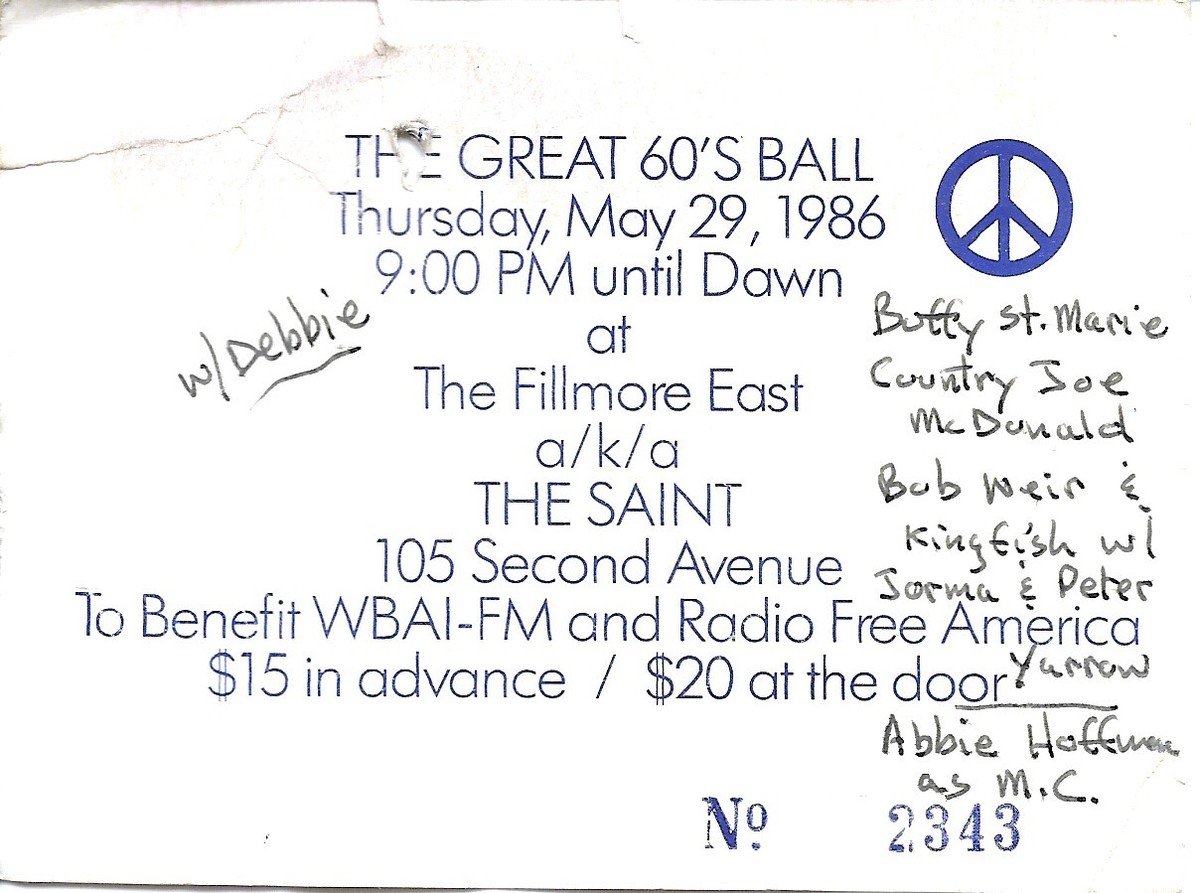 THE GREAT 60'S BALL
Thursday, May 29, 1986
9:00 PM until Dawn
at
The Fillmore East
a/k/a
THE SAINT
105 Second Avenue
To Benefit WBAI-FM and Radio Free America
$15 in advance / $20 at the door
w/Debbie
Buffy St. Marie
Country Joe
McDonald
Bob Weir &
Kingfish w/
Jorma & Peter
Yarrow
Abbie Hoffman
as M.C.
No 2343